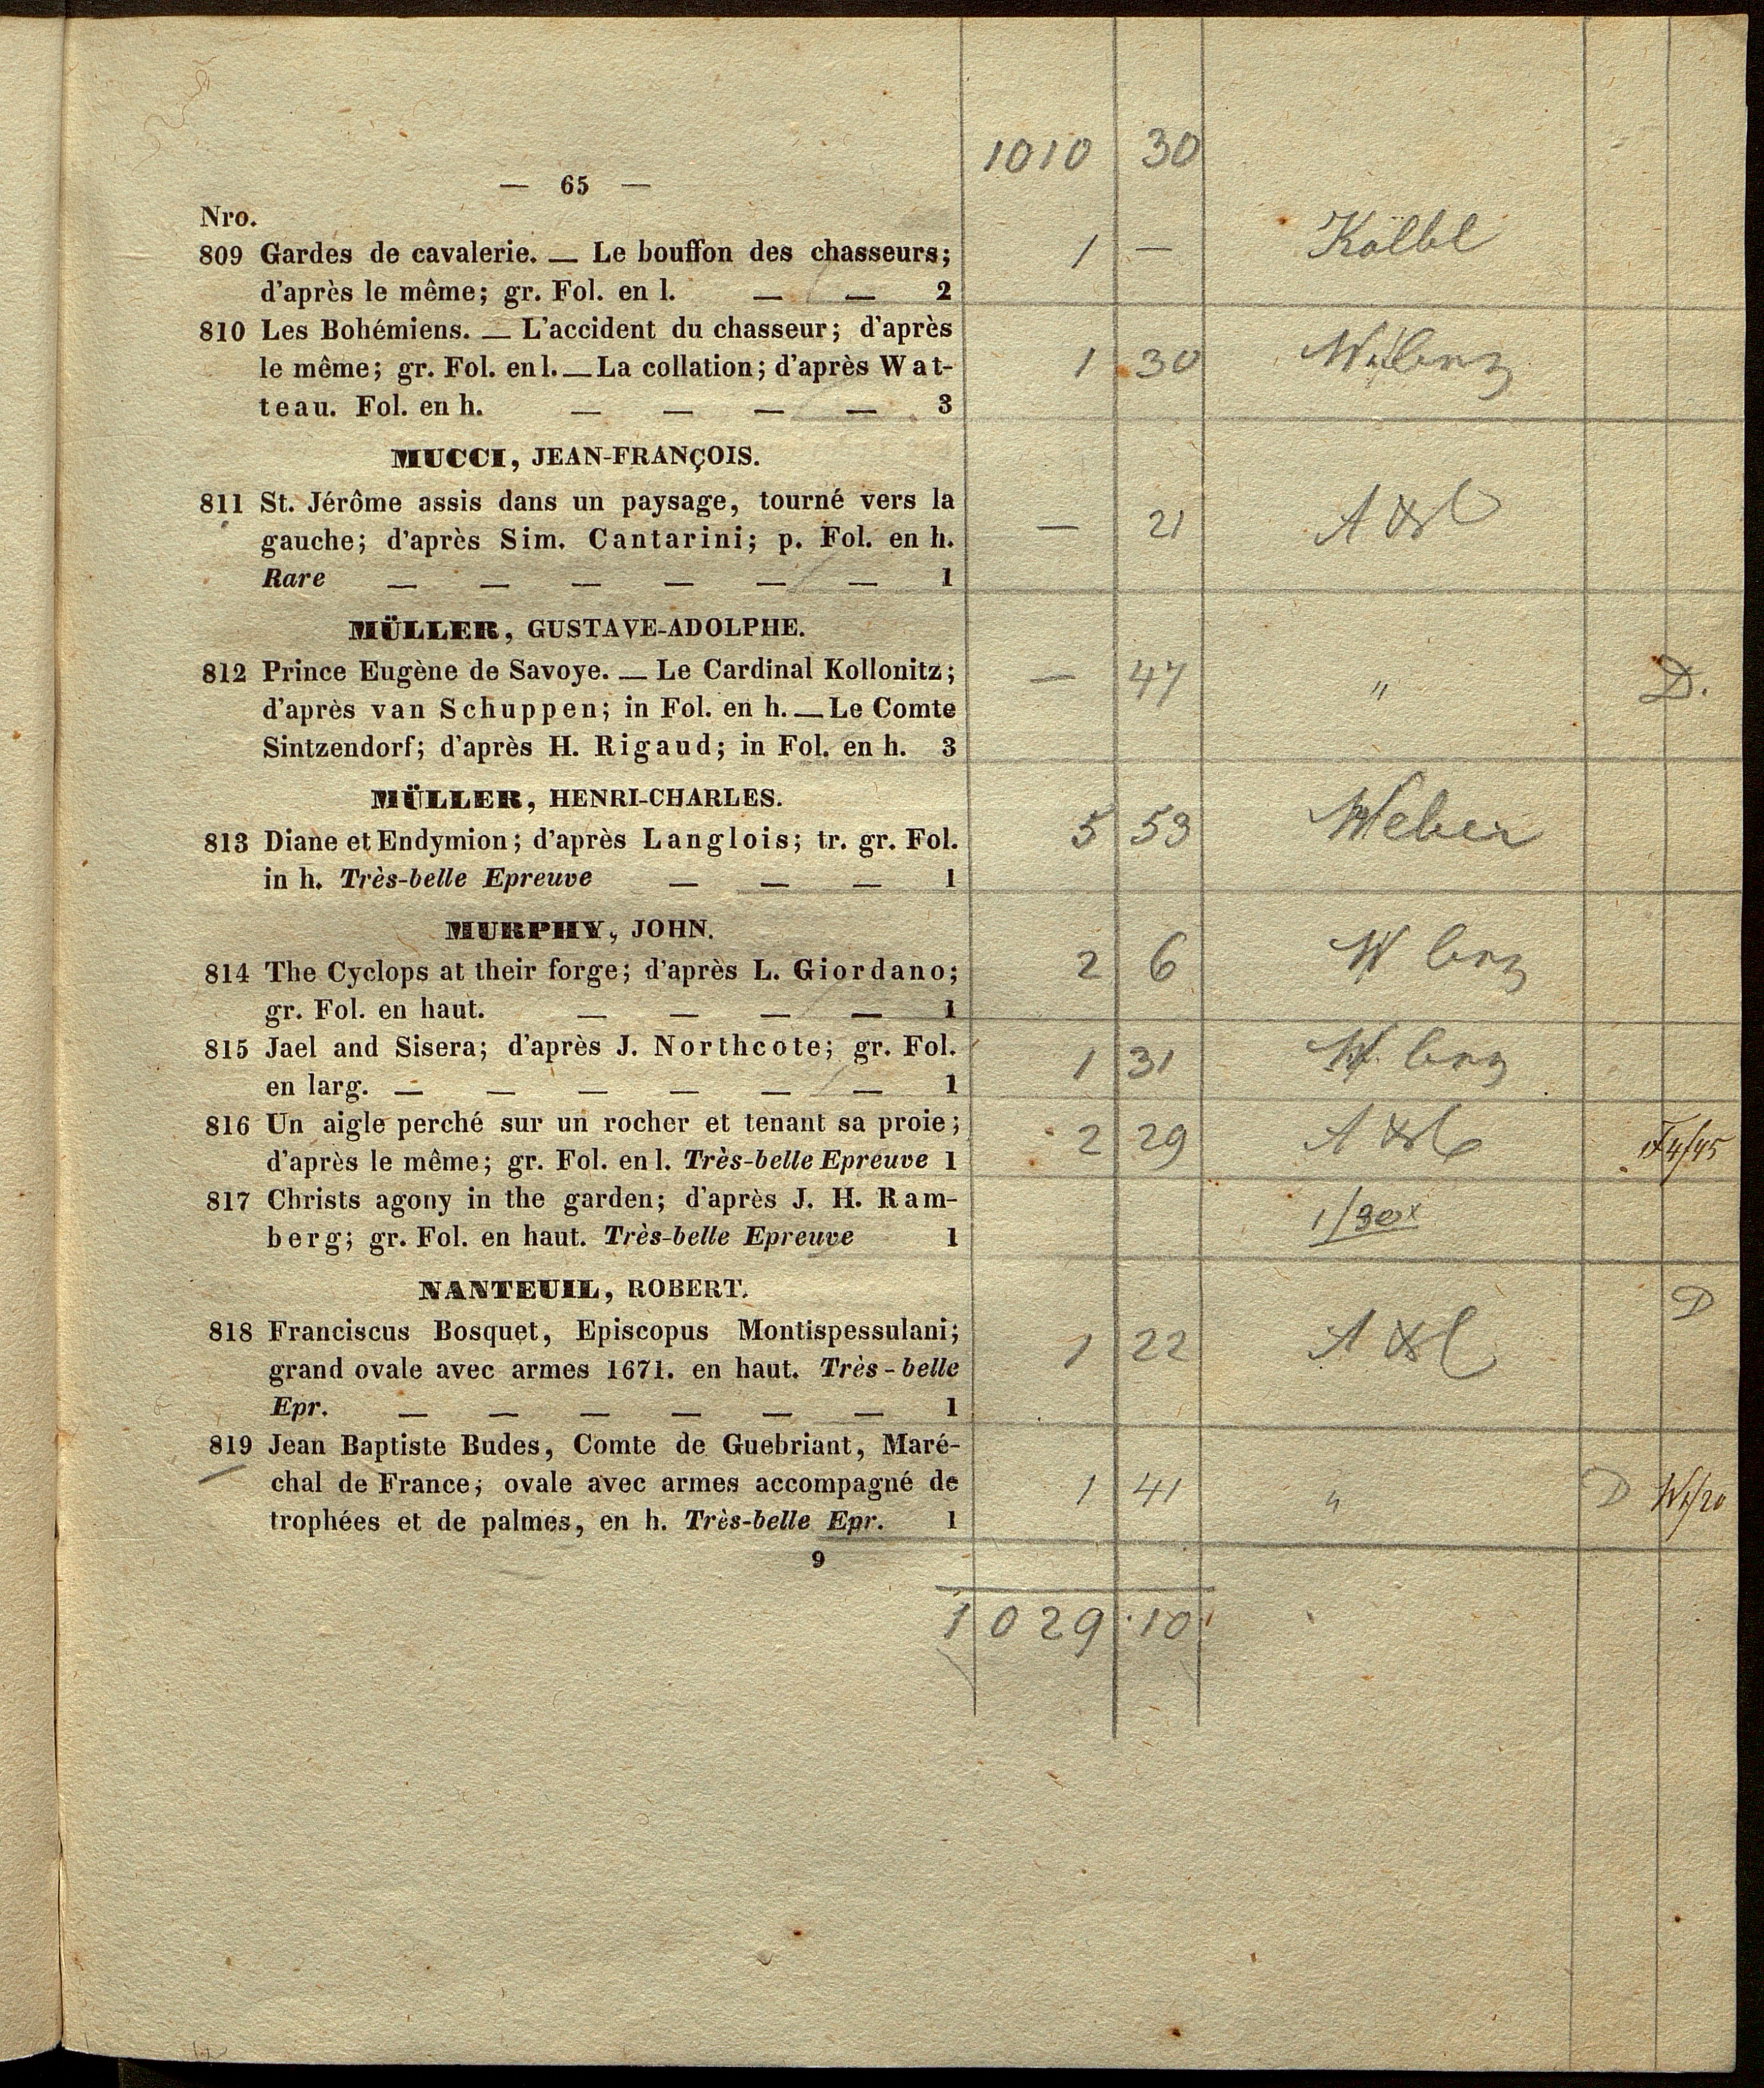 1010 30
— 65 —
Nro.
809 Gardes de cavalerie. — Le bouffon des chasseurs; 1 — Kölbl
d'après le même; gr. Fol. en l. — — 2
810 Les Bohémiens. — L'accident du chasseur; d'après
le même; gr. Fol. en l. — La collation; d'après Wat- 1 30
teau. Fol. en h. — — — — 3
MUCCI, JEAN-FRANÇOIS.
811 St. Jérôme assis dans un paysage, tourné vers la
gauche; d'après Sim. Cantarini; p. Fol. en h. — 21
Rare — — — — — — 1
MÜLLER, GUSTAVE-ADOLPHE.
812 Prince Eugène de Savoye. — Le Cardinal Kollonitz; — 47 " D.
d'après van Schuppen; in Fol. en h. — Le Comte
Sintzendorf; d'après H. Rigaud; in Fol. en h. 3
MÜLLER, HENRI-CHARLES.
813 Diane et Endymion; d'après Langlois; tr. gr. Fol. 5 53 Weber
in h. Très-belle Epreuve — — — 1
MURPHY, JOHN.
814 The Cyclops at their forge; d'après L. Giordano; 2 6
gr. Fol. en haut. — — — — 1
815 Jael and Sisera; d'après J. Northcote; gr. Fol. 1 31
en larg. — — — — — — 1
816 Un aigle perché sur un rocher et tenant sa proie; 2 29
d'après le même; gr. Fol. en l. Très-belle Epreuve 1
817 Christs agony in the garden; d'après J. H. Ram- 1/30x
berg; gr. Fol. en haut. Très-belle Epreuve 1
NANTEUIL, ROBERT.
818 Franciscus Bosquet, Episcopus Montispessulani; D
grand ovale avec armes 1671. en haut. Très-belle 1 22
Epr. — — — — — — 1
819 Jean Baptiste Budes, Comte de Guebriant, Maré-
chal de France; ovale avec armes accompagné de 1 41 " D
trophées et de palmes, en h. Très-belle Epr. 1
9
1029 10